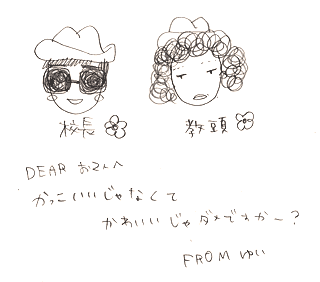 校長
教頭
DEAR お2人へ
かっこいいじゃなくて
かわいいじゃダメですかー?
FROM ゆい